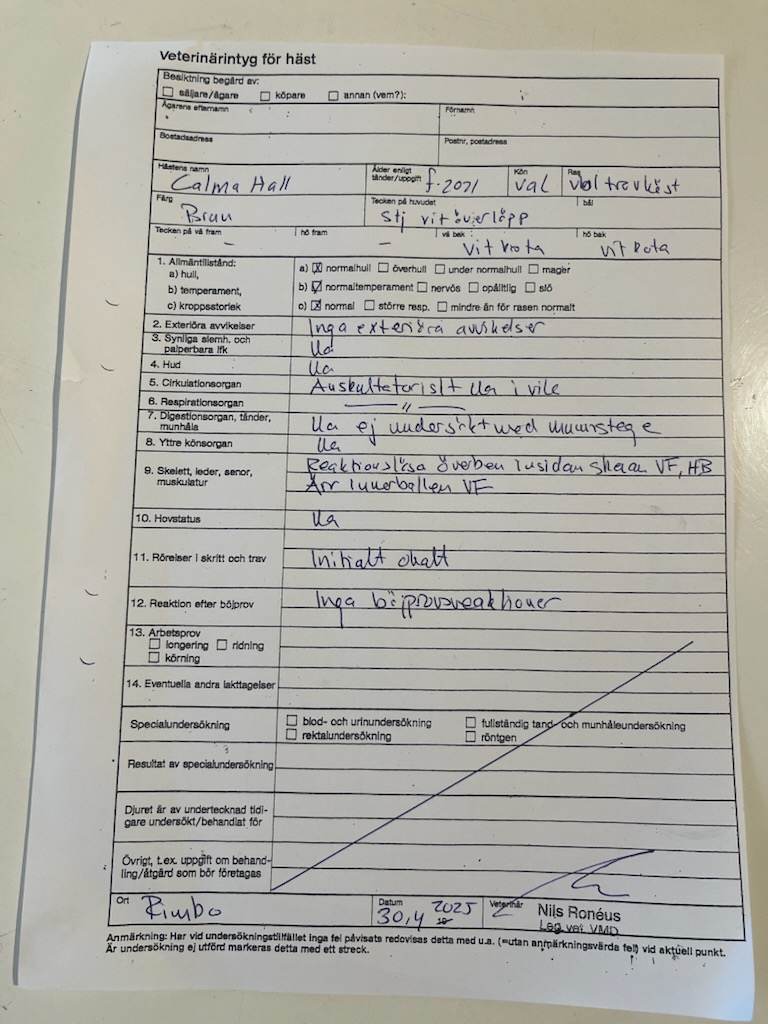 Veterinärintyg för häst
Besiktning begärd av:
☐ säljare/ägare ☐ köpare ☐ annan (vem?):
Ägarens efternamn Förnamn
Bostadsadress Postnr, postadress
Hästens namn Ålder enligt tänder/uppgift Kön Ras
Calma Hall f. 2021 val vbl travhäst
Färg Tecken på huvudet bål
Brun Stj vit överläpp
Tecken på vä fram hö fram vä bak hö bak
– – vit krota vit kota
1. Allmäntillstånd:
a) hull, a) ☒ normalhull ☐ överhull ☐ under normalhull ☐ mager
b) temperament, b) ☑ normaltemperament ☐ nervös ☐ opålitlig ☐ slö
c) kroppsstorlek c) ☒ normal ☐ större resp. ☐ mindre än för rasen normalt
2. Exteriöra avvikelser Inga exteriöra avvikelser
3. Synliga slemh. och palperbara lfk Ua
4. Hud Ua
5. Cirkulationsorgan Auskultatoriskt Ua i vila
6. Respirationsorgan — " —
7. Digestionsorgan, tänder, munhåla Ua ej undersökt med munstege
8. Yttre könsorgan Ua
9. Skelett, leder, senor, muskulatur Reaktionslösa överben insidan skenan VF, HB
Ärr innerballen VF
10. Hovstatus Ua
11. Rörelser i skritt och trav Initialt ohalt
12. Reaktion efter böjprov Inga böjprovsreaktioner
13. Arbetsprov
☐ longering ☐ ridning
☐ körning
14. Eventuella andra iakttagelser
Specialundersökning ☐ blod- och urinundersökning ☐ fullständig tand- och munhåleundersökning
☐ rektalundersökning ☐ röntgen
Resultat av specialundersökning
Djuret är av undertecknad tidi-
gare undersökt/behandlat för
Övrigt, t.ex. uppgift om behand-
ling/åtgärd som bör företagas
Ort Datum Veterinär
Rimbo 30,4 2025 Nils Ronéus
Leg vet VMD
Anmärkning: Har vid undersökningstillfället inga fel påvisats redovisas detta med u.a. (=utan anmärkningsvärda fel) vid aktuell punkt.
Är undersökning ej utförd markeras detta med ett streck.